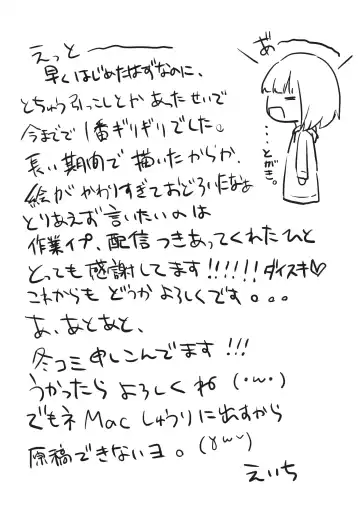 えっと――――
早くはじめたはずなのに、
とちゅう引っこしとか あったせいで
今までで 1番ギリギリでした。
長い期間で 描いたからか、
絵が かわりすぎておどろいたなぁ
とりあえず 言いたいのは
作業イプ、配信 つきあってくれたひと
とっても 感謝してます!!!!!! ダイスキ♡
これからも どうか よろしくです。。。
あ、あとあと、
冬コミ 申しこんでます!!!
うかったら よろしくね (・ω・)
でもネ Mac しゅうりに出すから
原稿できないヨ。(γω~)
えいち
あ――
…とがき。